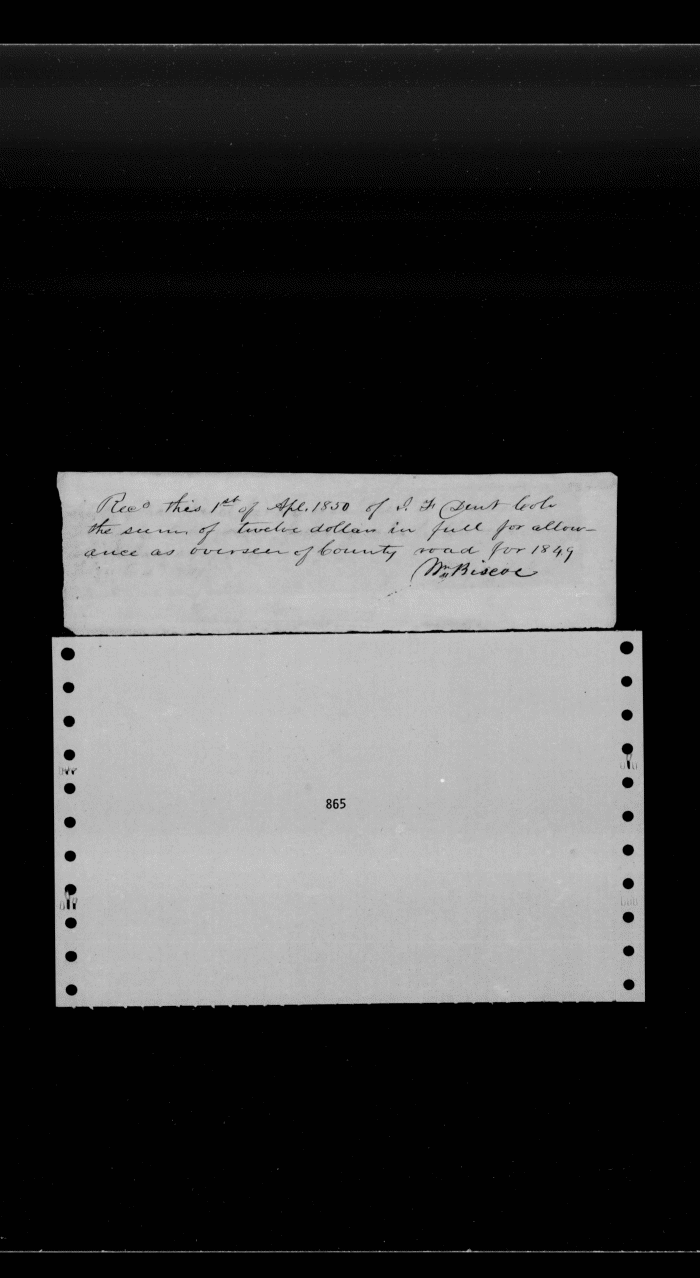 Recd this 1st of Apl. 1850 of J. F. Dent Colr
the sum of twelve dollars in full for allow-
ance as overseer of County road for 1849
Wm Biscoe
865